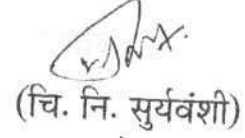 (चि. नि. सुर्यवंशी)